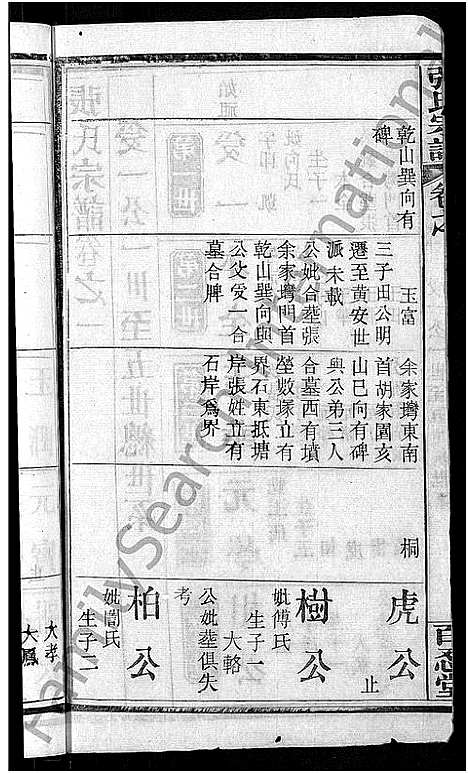 張氏宗譜
卷之
百忍堂
乾山巽向有
碑
玉富
三子田公明
遷至黄安世
派未載
公妣合塟張
余家塆門首
乾山巽向與
公父受一合
墓合牌
余家塆東南
首胡家園亥
山巳向有碑
與公弟三人
合墓西有墳
塋數塚立有
界石東抵塘
岸張姓立有
石岸爲界
桐
虎公
止
樹公
妣傅氏
生子一
大輅
公妣塟俱失
考
柏公
妣闇氏
生子二
大孝
大鳳
FamilySearch International